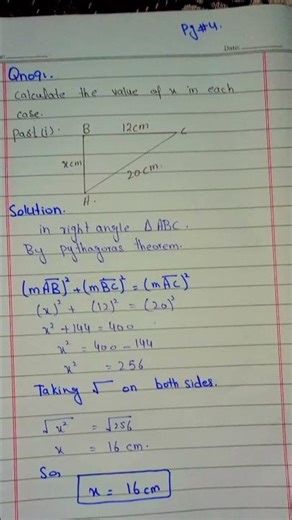 Pg#4.
Date:
Qno91.
Calculate the value of x in each
case.
Part(i).
B 12cm C
xcm
20cm.
A.
Solution.
in right angle ΔABC.
By pythagoras theorem.
(mAB)² + (mBC)² = (mAC)²
(x)² + (12)² = (20)²
x² + 144 = 400
x² = 400 - 144
x² = 256
Taking √ on both sides.
√x² = √256
x = 16 cm.
So
x = 16 cm